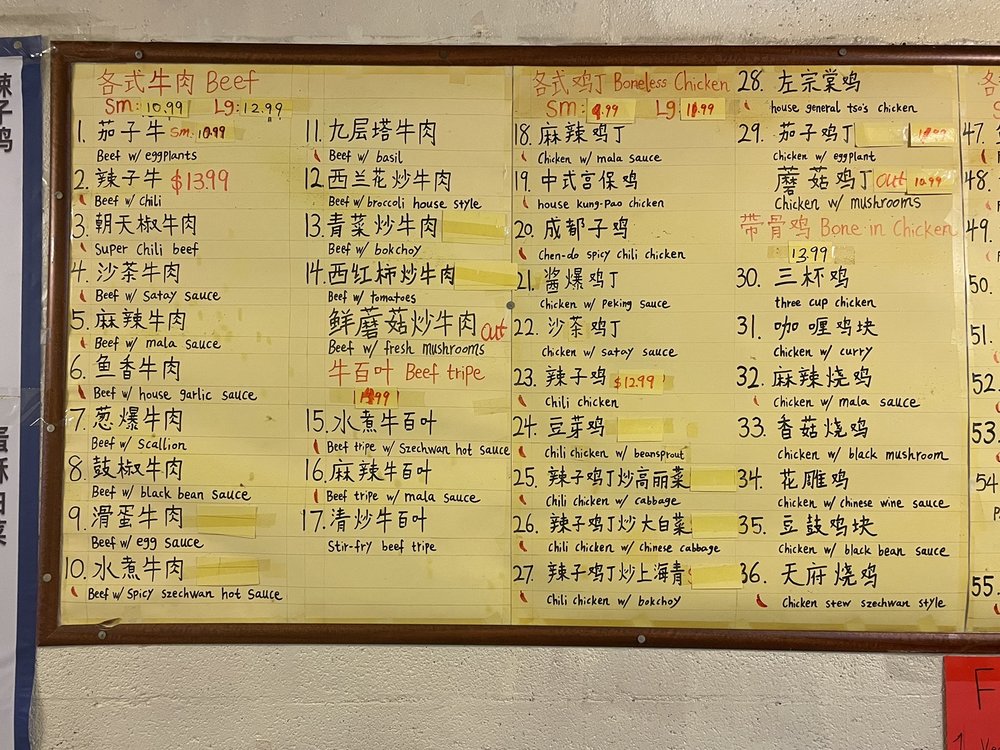 辣子鸡
各式牛肉 Beef
Sm: 10.99 Lg: 12.99
1. 茄子牛 Sm. 10.99
Beef w/ eggplants
2. 辣子牛 $13.99
Beef w/ chili
3. 朝天椒牛肉
Super Chili beef
4. 沙茶牛肉
Beef w/ Satay sauce
5. 麻辣牛肉
Beef w/ mala sauce
6. 鱼香牛肉
Beef w/ house garlic sauce
7. 葱爆牛肉
Beef w/ Scallion
8. 鼓椒牛肉
Beef w/ black bean sauce
9. 滑蛋牛肉
Beef w/ egg sauce
10. 水煮牛肉
Beef w/ Spicy szechwan hot Sauce
11. 九层塔牛肉
Beef w/ basil
12. 西兰花炒牛肉
Beef w/ broccoli house style
13. 青菜炒牛肉
Beef w/ bokchoy
14. 西红柿炒牛肉
Beef w/ tomatoes
鲜蘑菇炒牛肉 out
Beef w/ fresh mushrooms
牛百叶 Beef tripe
15. 水煮牛百叶
Beef tripe w/ Szechwan hot sauce
16. 麻辣牛百叶
Beef tripe w/ mala sauce
17. 清炒牛百叶
Stir-fry beef tripe
各式鸡丁 Boneless Chicken
Sm: 9.99 Lg: 10.99
18. 麻辣鸡丁
Chicken w/ mala sauce
19. 中式宫保鸡
house kung-Pao chicken
20. 成都子鸡
Chen-do spicy chili chicken
21. 酱爆鸡丁
Chicken w/ Peking sauce
22. 沙茶鸡丁
Chicken w/ satay sauce
23. 辣子鸡 $12.99
Chili chicken
24. 豆芽鸡
Chili chicken w/ beansprout
25. 辣子鸡丁炒高丽菜
Chili chicken w/ cabbage
26. 辣子鸡丁炒大白菜
Chili chicken w/ chinese cabbage
27. 辣子鸡丁炒上海青
Chili chicken w/ bokchoy
28. 左宗棠鸡
house general tso's chicken
29. 茄子鸡丁
Chicken w/ eggplant
蘑菇鸡丁 out 10.99
Chicken w/ mushrooms
带骨鸡 Bone in Chicken
13.99
30. 三杯鸡
three cup chicken
31. 咖喱鸡块
Chicken w/ curry
32. 麻辣烧鸡
Chicken w/ mala sauce
33. 香菇烧鸡
Chicken w/ black mushroom
34. 花雕鸡
Chicken w/ chinese wine sauce
35. 豆鼓鸡块
Chicken w/ black bean sauce
36. 天府烧鸡
Chicken stew szechwan style
各
47.
48.
49.
50.
51.
52.
53.
54
55.
F